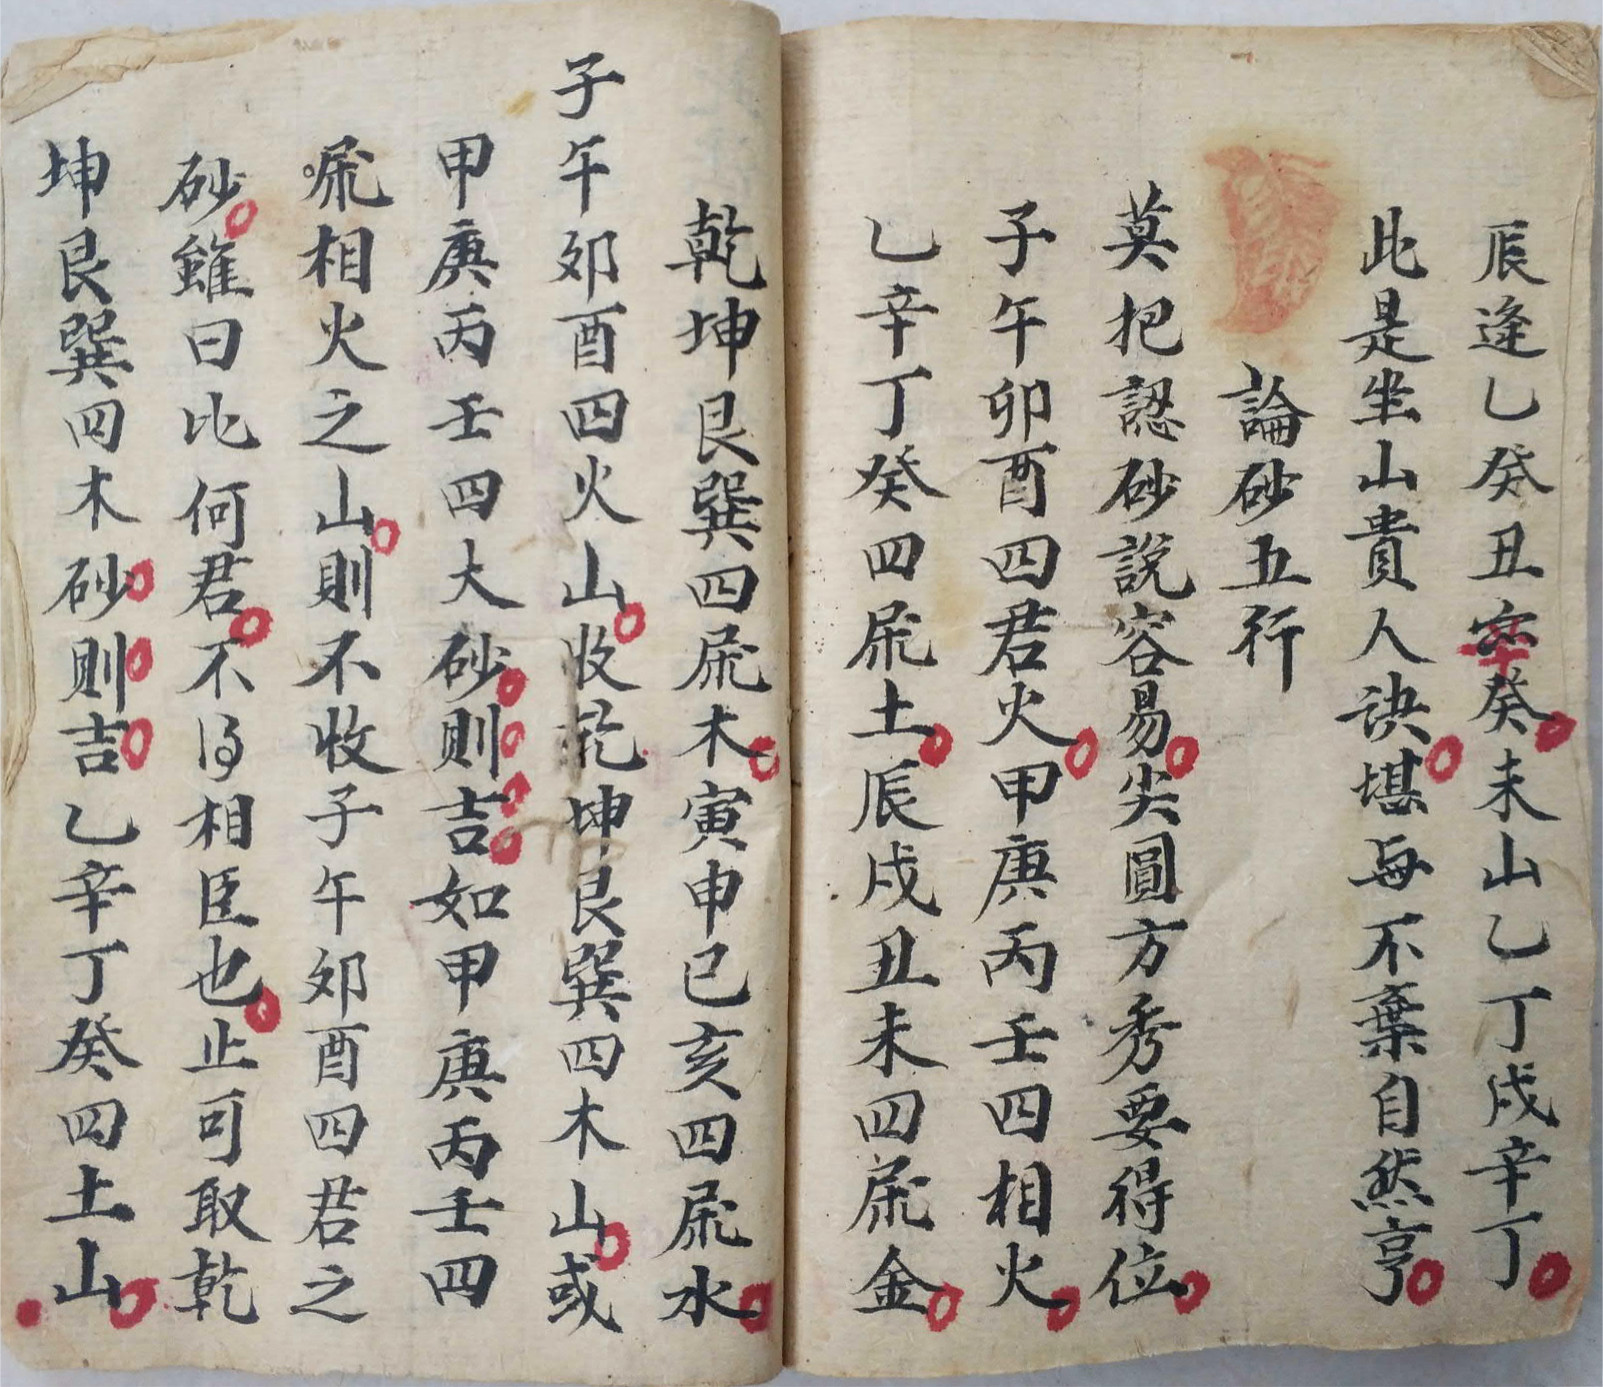 辰逢乙癸丑辛癸未山乙丁戌辛丁
此是坐山貴人訣堪每不棄自然亨
論砂五行
莫把認砂說容易尖圓方秀要得位
子午卯酉四君火甲庚丙壬四相火
乙辛丁癸四屬土辰戌丑未四屬金
乾坤艮巽四屬木寅申巳亥四屬水
子午夘酉四火山收乾坤艮巽四木山或
甲庚丙壬四大砂則吉如甲庚丙壬四
屬相火之山則不收子午夘酉四君之
砂雖曰比何君不得相臣也止可取乾
坤艮巽四木砂則吉乙辛丁癸四土山